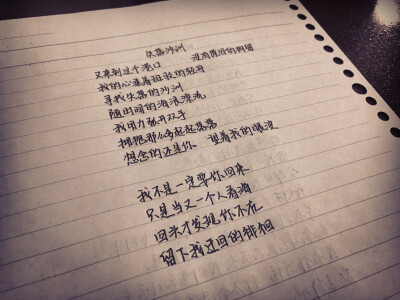 失落沙洲
又来到这个港口 没有原因的拘留
我的心乘着斑驳的轻舟
寻找失落的沙洲
随时间的海浪漂流
我用力张开双手
拥抱那么多起起落落
想念的还是你 望着我的眼波
我不是一定要你回来
只是当又一个人看海
回头才发现你不在
留下我迂回的徘徊